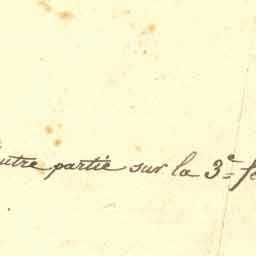 autre partie sur la 3e= fe